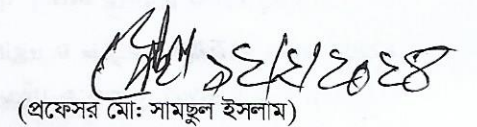 ১২/২/২০২৪
(প্রফেসর মো: সামছুল ইসলাম)